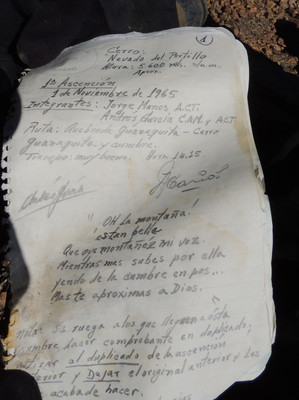 1
Cerro:
Nevado del Portillo
Altura: 5.600 mts. s.n.m.
Aprox.
1ª Ascención
1 de Noviembre de 1965
Integrantes: Jorge A.C.T.
Andrés García C.A.M. y ACT
Ruta: Quebrada Guanaquita - Cerro
Guanaquita y cumbre.
Tiempo: muy bueno. Hora 14.15
"Oh La montaña!
es tan bella
Que oye montañez mi voz.
Mientras mas subes por ella
yendo de la cumbre en pos...
Mas te aproximas a Dios.
Nota: Se ruega a los que lleguen a ésta
cumbre hacer comprobante en duplicado,
al duplicado de la ascensión
y Dejar el original anterior y los
acaba de hacer.